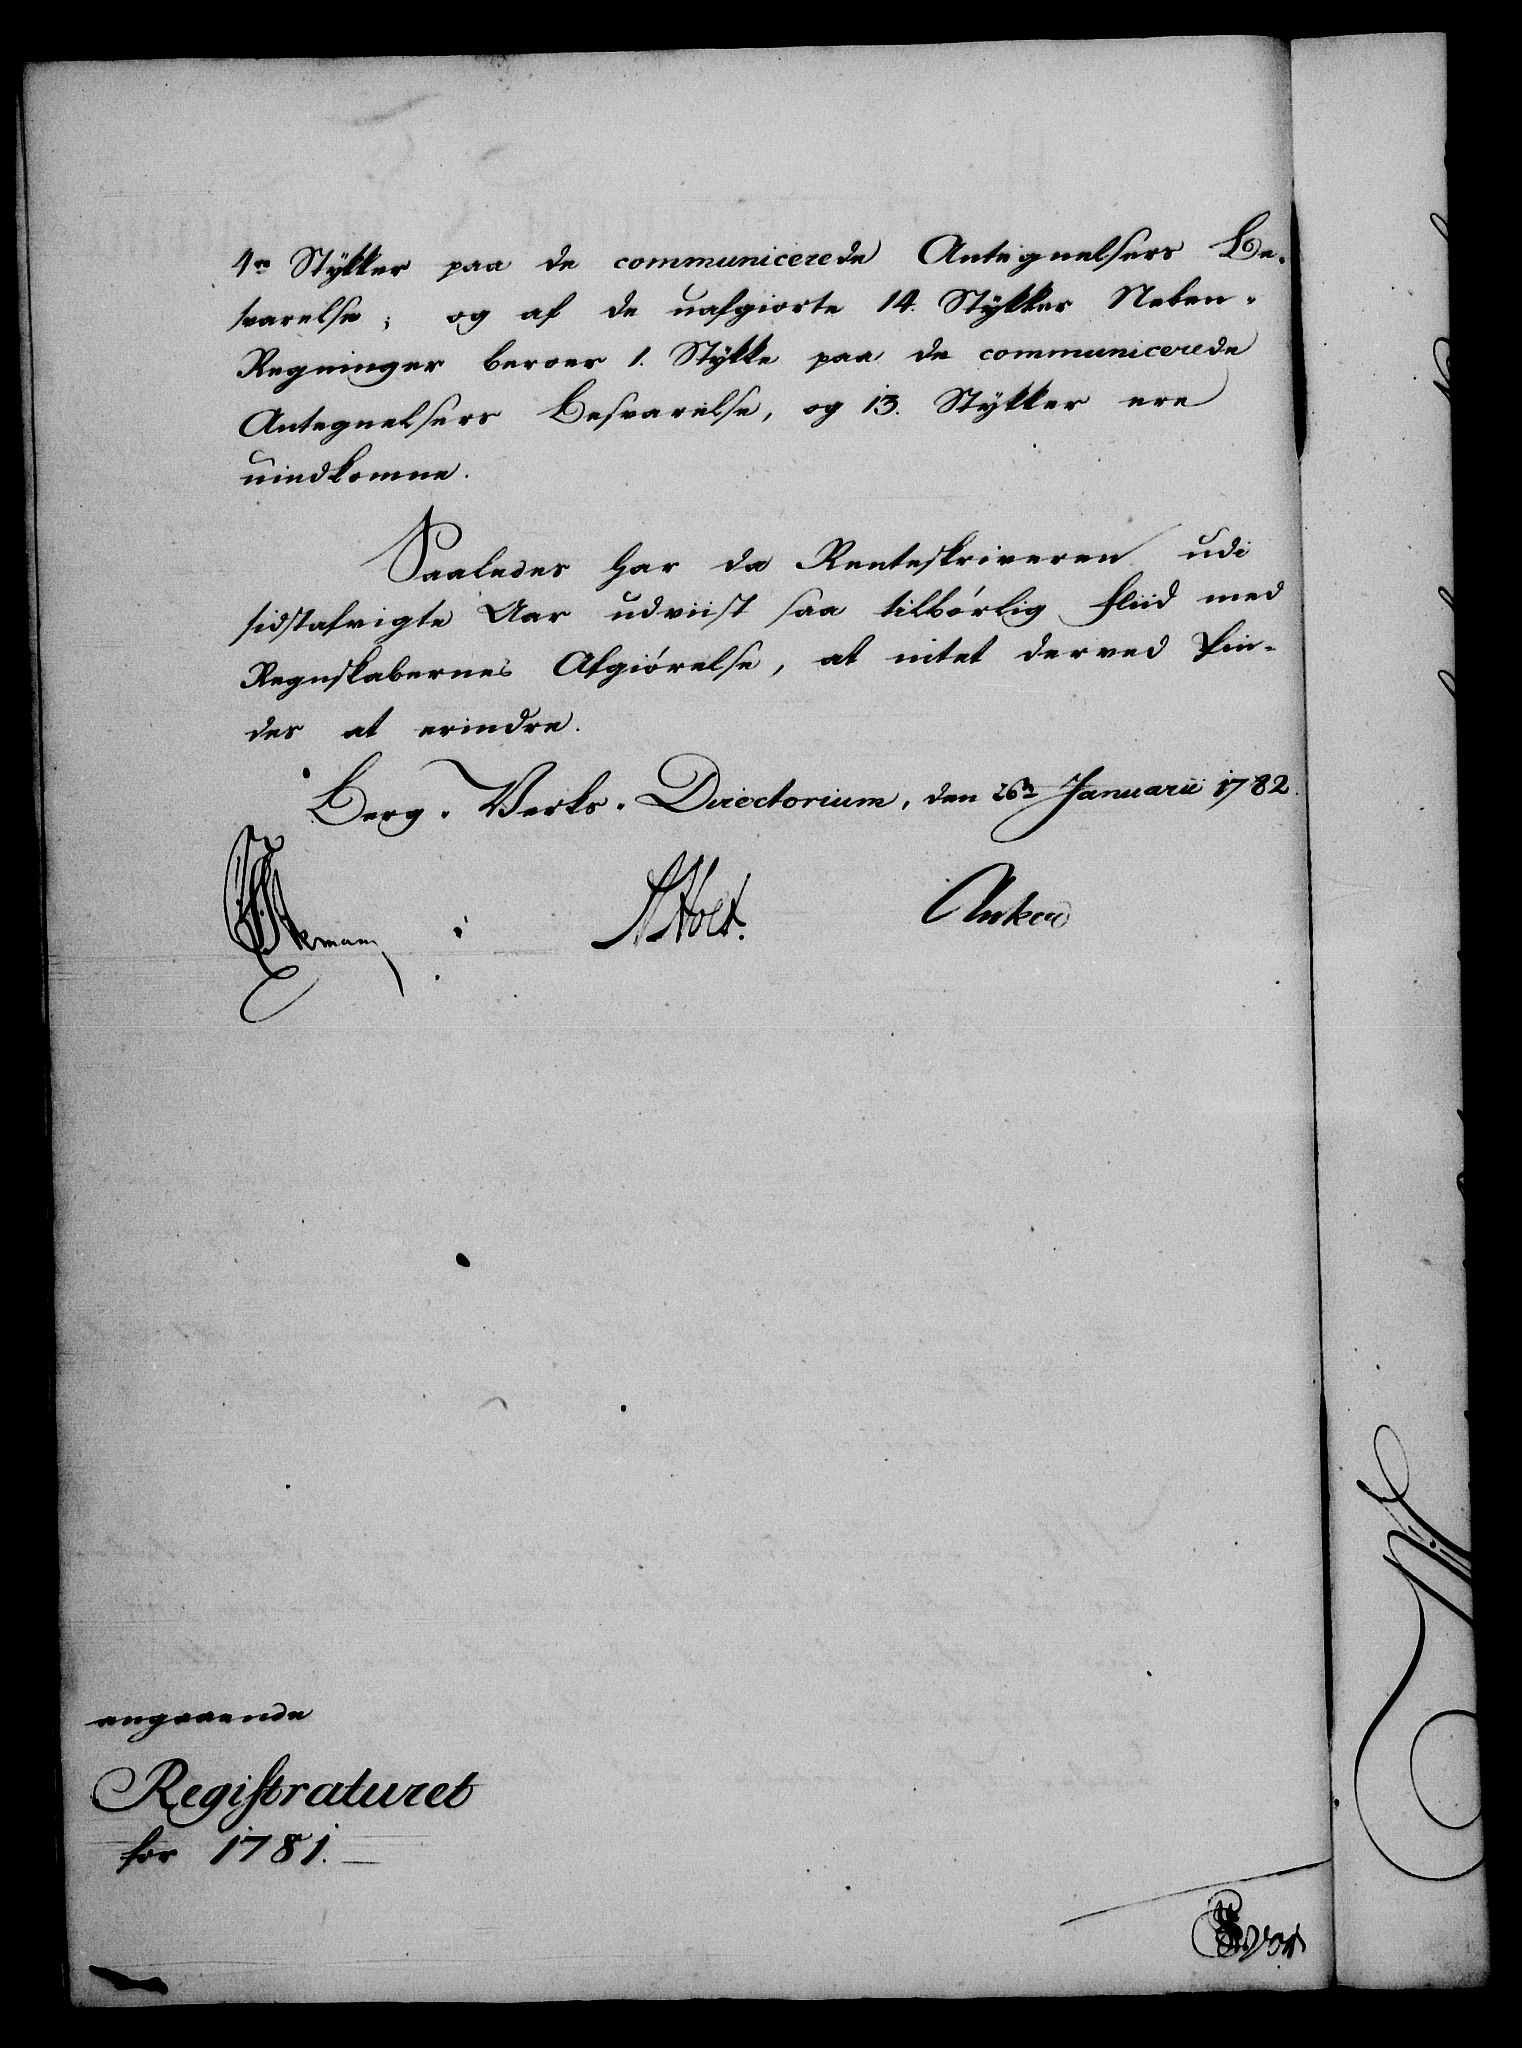 4re Stÿkker paa de communicerede Antegnelsers Be-
svarelse; og af de uafgiorte 14. Stÿkker Neben-
Regninger beroer 1. Stÿkke paa de communicerede
Antegnelsers Besvarelse, og 13. Stÿkker ere
uindkomne.
Saaledes har da Renteskriveren udi
sidstafvigte Aar udviist saa tilbørlig Fliid med
Regnskabernes Afgiørelse, at intet derved fin-
des at erindre.
Berg-Verks-Directorium, den 26de Januarii 1782.
Holt. Anker
angaaende
Registraturet
for 1781.